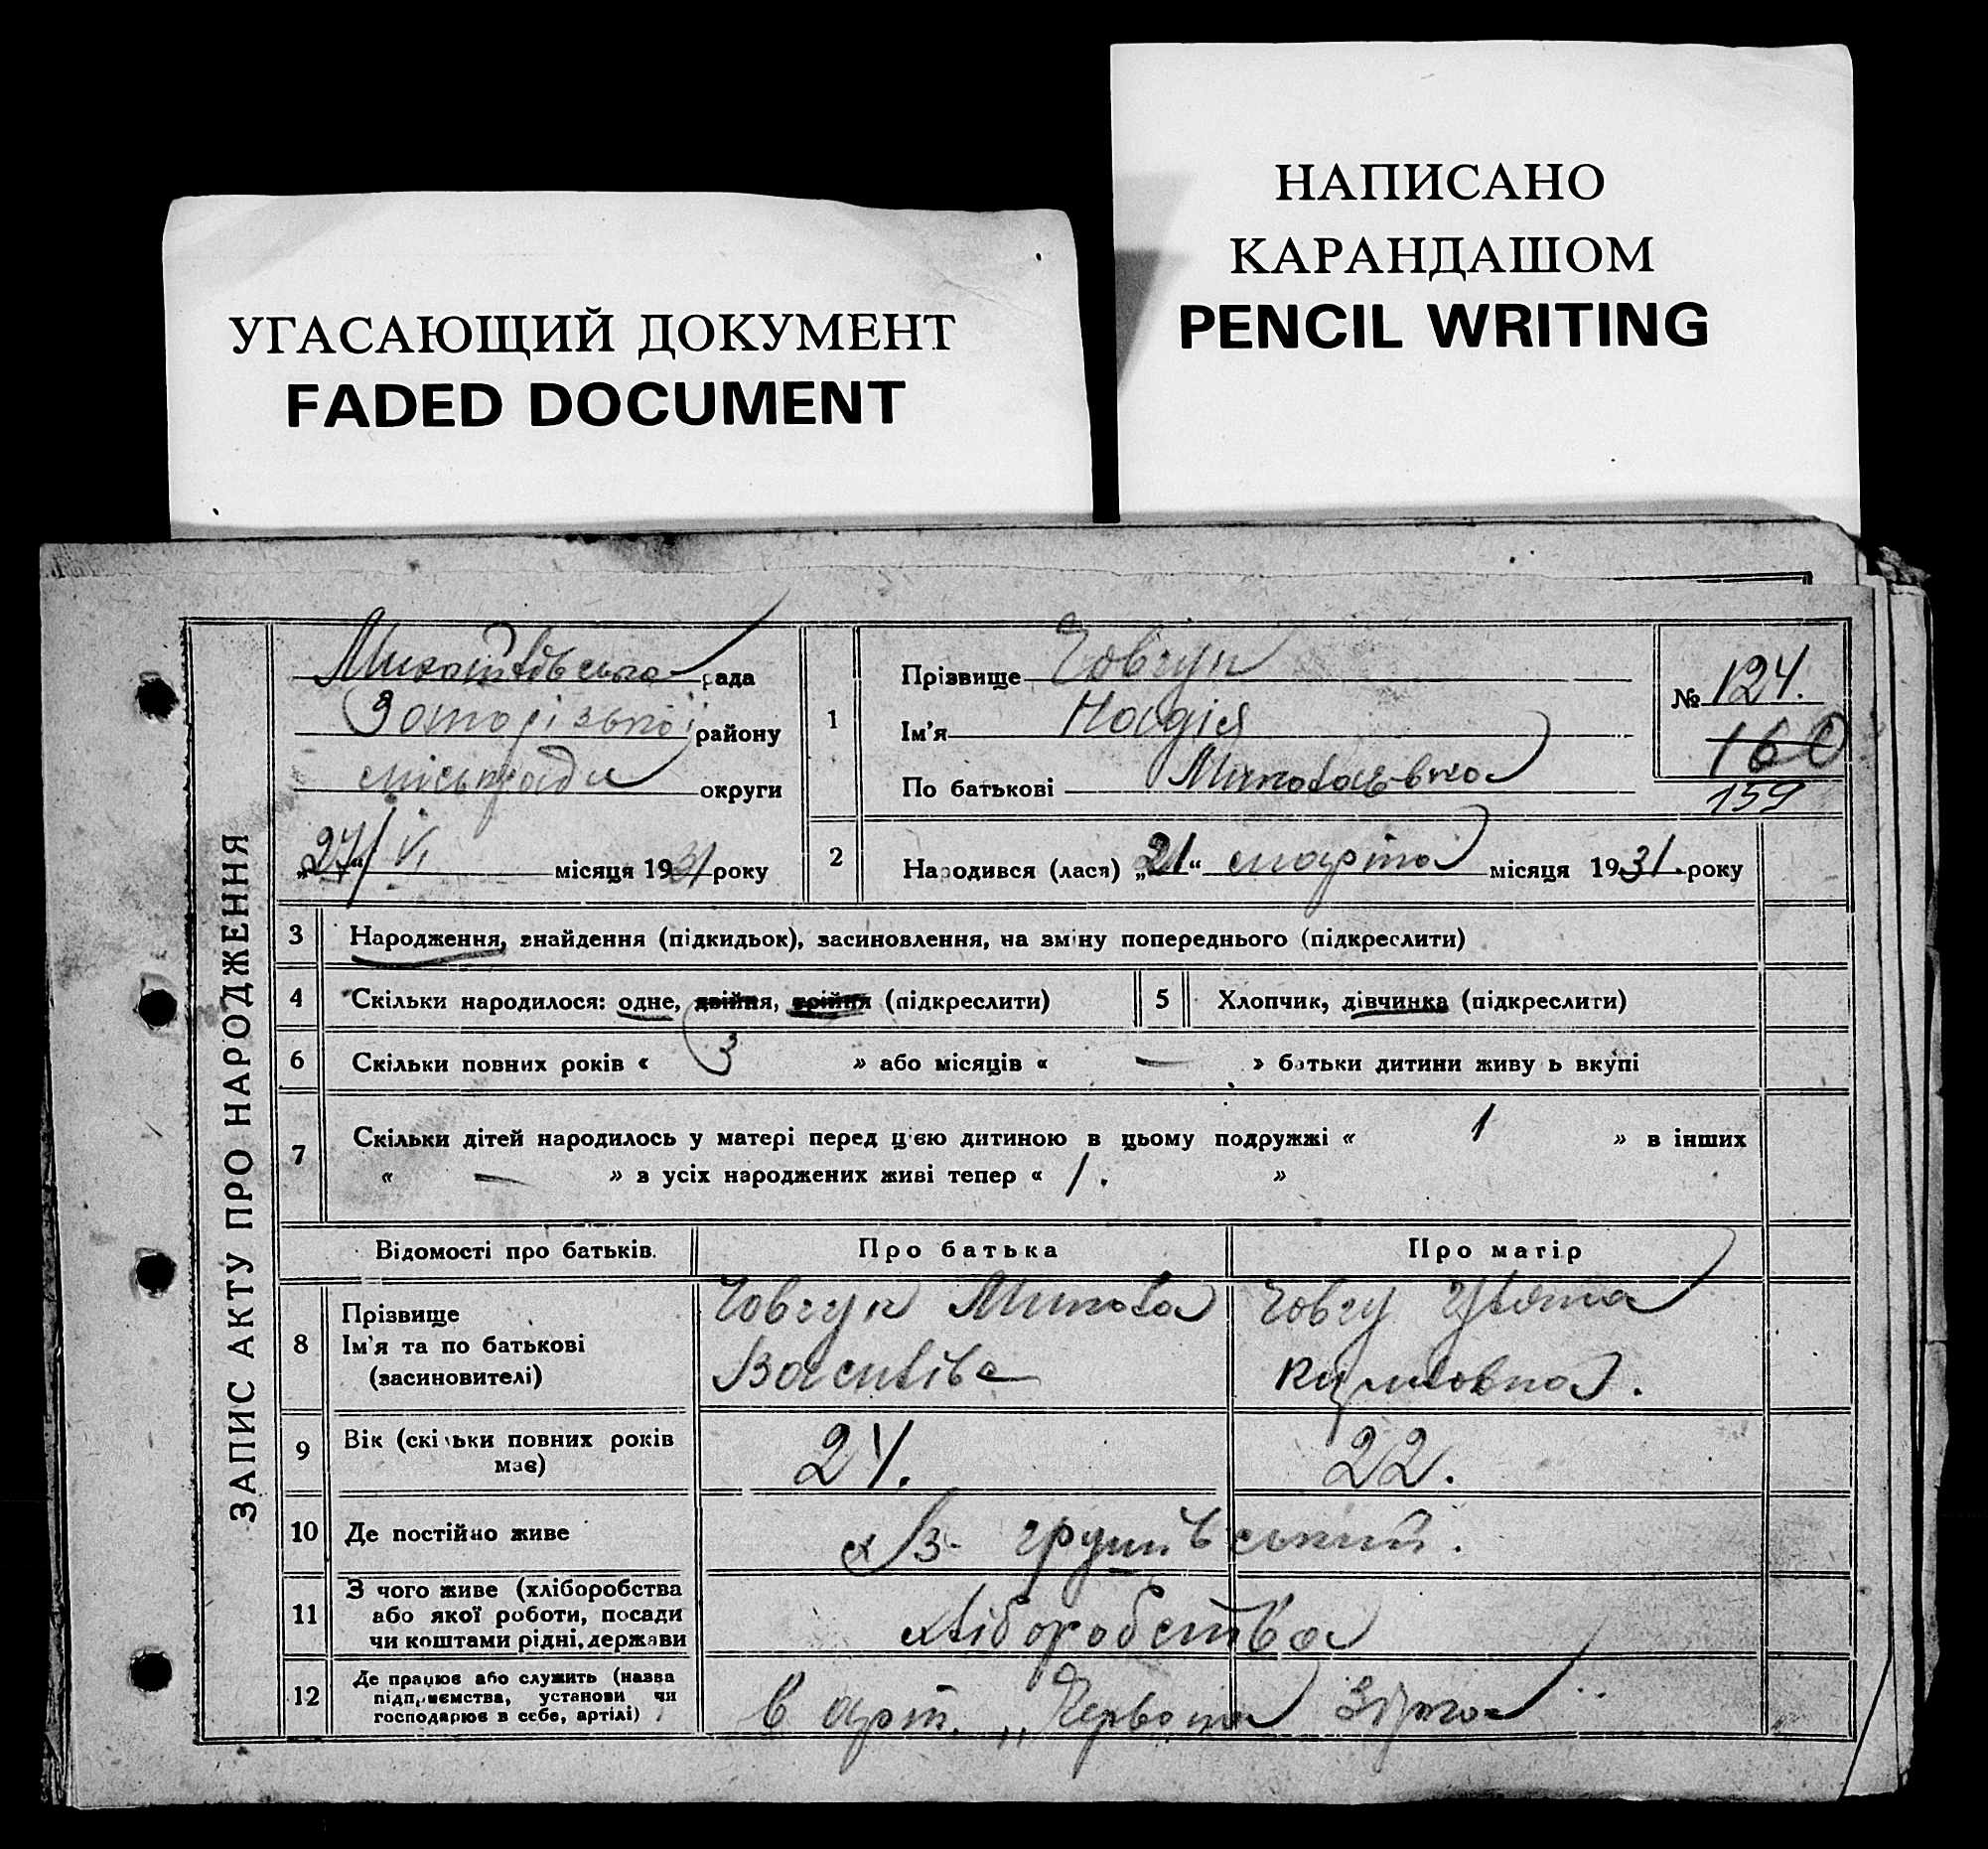 НАПИСАНО
КАРАНДАШОМ
PENCIL WRITING
УГАСАЮЩИЙ ДОКУМЕНТ
FADED DOCUMENT
ЗАПИС АКТУ ПРО НАРОДЖЕННЯ
Михайлівська рада
Запорізької району
міськради округи
„27“ VI місяця 1931 року
1
Прізвище Човгун
Ім'я Надія
По батькові Миколаєвна
№ 124.
160
159
2 Народився (лася) „21“ марта місяця 1931 року
3 Народження, знайдення (підкидьок), засиновлення, на зміну попереднього (підкреслити)
4 Скільки народилося: одне, двійня, трійня (підкреслити)
5 Хлопчик, дівчинка (підкреслити)
6 Скільки повних років « 3 » або місяців « — » батьки дитини живуть вкупі
7 Скільки дітей народилось у матері перед цією дитиною в цьому подружжі « 1 » в інших
« — » з усіх народжених живі тепер « 1. »
Відомості про батьків. Про батька Про матір
8 Прізвище
Ім'я та по батькові
(засиновителі)
Човгун Микола
Васильів
Човгу
9 Вік (скільки повних років
має)
24. 22.
10 Де постійно живе
х/з грушівський.
11 З чого живе (хліборобства
або якої роботи, посади
чи коштами рідні, держави
хліборобства
12 Де працює або служить (назва
підприємства, установи чи
господарює в себе, артілі)
в арт. „Червона Зірка